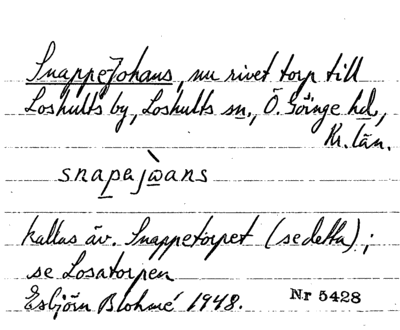 SnappeJohans, nu rivet torp till
Loshults by, Loshults sn, Ö. Göinge hd,
Kr. län.
snapajωans
kallas äv. Snappetorpet (se detta);
se Losatorpen
Esbjörn Blohmé 1948. Nr 5428